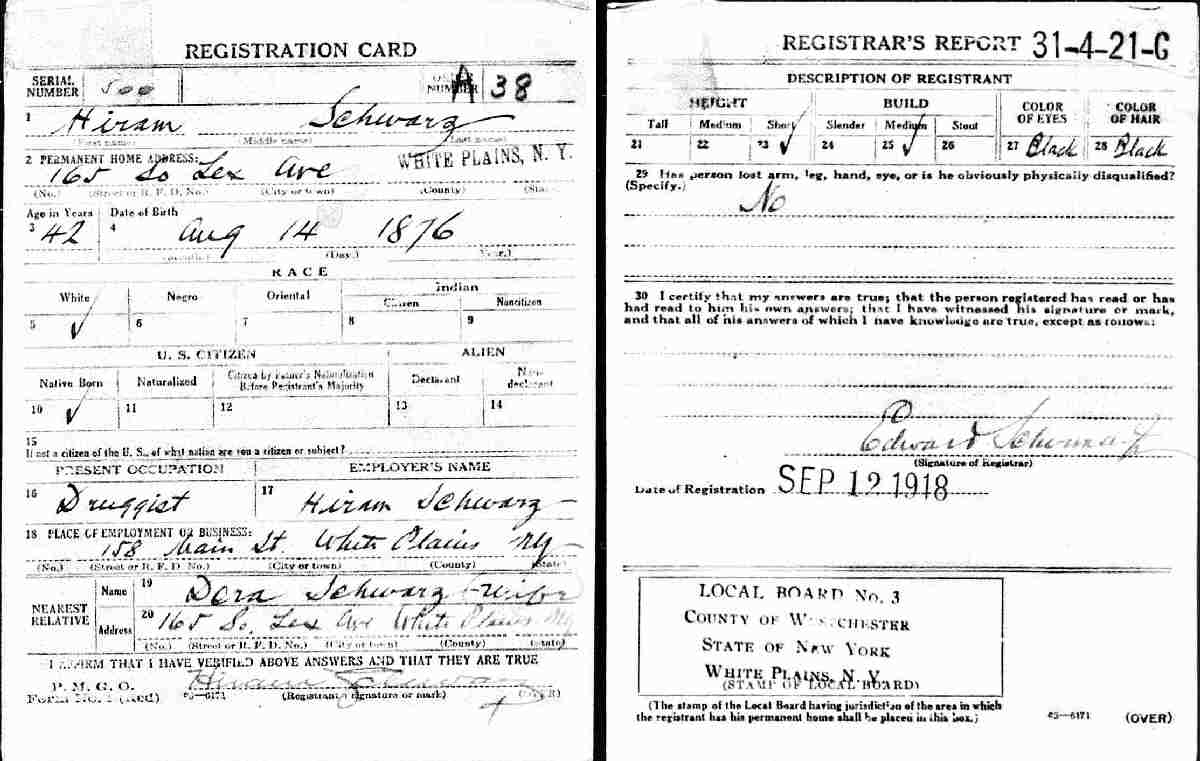 REGISTRATION CARD
SERIAL NUMBER 500 NUMBER A 38
1 Hiram Schwarz
(First name) (Middle name) (Last name)
2 PERMANENT HOME ADDRESS:
165 So Lex Ave WHITE PLAINS, N. Y.
(No.) (Street or R. F. D. No.) (City or town) (County) (State)
Age in Years Date of Birth
3 42 4 Aug 14 1876
(Day.) (Year.)
RACE
White Negro Oriental Indian
Citizen Noncitizen
5 ✓ 6 7 8 9
U. S. CITIZEN ALIEN
Native Born Naturalized Citizen by Father's Naturalization Before Registrant's Majority Declarant Non-declarant
10 ✓ 11 12 13 14
15
If not a citizen of the U. S., of what nation are you a citizen or subject?
PRESENT OCCUPATION EMPLOYER'S NAME
16 Druggist 17 Hiram Schwarz
18 PLACE OF EMPLOYMENT OR BUSINESS:
158 Main St. White Plains NY
(No.) (Street or R. F. D. No.) (City or town) (County) (State)
NEAREST RELATIVE
Name 19 Dora Schwarz (wife)
Address 20 165 So. Lex Ave White Plains NY
(No.) (Street or R. F. D. No.) (City or town) (County) (State)
I AFFIRM THAT I HAVE VERIFIED ABOVE ANSWERS AND THAT THEY ARE TRUE
P. M. G. O.
Form No. 1 (Red) 03—6171 Hiram Schwarz
(Registrant's signature or mark) (OVER)
REGISTRAR'S REPORT 31-4-21-C
DESCRIPTION OF REGISTRANT
HEIGHT BUILD COLOR OF EYES COLOR OF HAIR
Tall Medium Short Slender Medium Stout
21 22 23 ✓ 24 25 ✓ 26 27 Black 28 Black
29 Has person lost arm, leg, hand, eye, or is he obviously physically disqualified?
(Specify.)
No
30 I certify that my answers are true; that the person registered has read or has
had read to him his own answers; that I have witnessed his signature or mark,
and that all of his answers of which I have knowledge are true, except as follows:
Edward
(Signature of Registrar)
Date of Registration SEP 12 1918
LOCAL BOARD No. 3
COUNTY OF WESTCHESTER
STATE OF NEW YORK
WHITE PLAINS, N. Y.
(STAMP OF LOCAL BOARD)
(The stamp of the Local Board having jurisdiction of the area in which
the registrant has his permanent home shall be placed in this box.)
03—6171 (OVER)